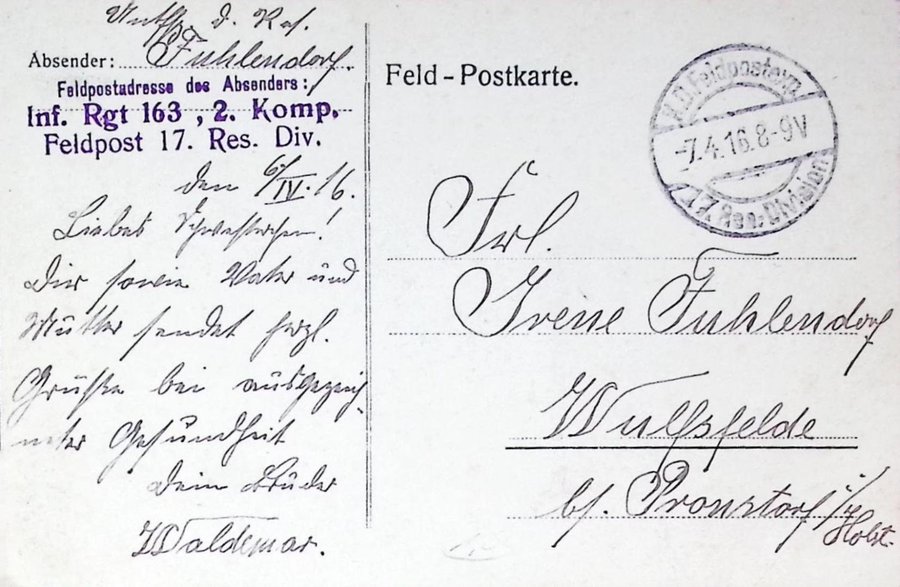 Untffz. d. Res.
Absender: Fuhlendorf.
Feldpostadresse des Absenders:
Inf. Rgt 163, 2. Komp.
Feldpost 17. Res. Div.
den 6/IV. 16.
Liebes Schwesterchen!
Dir sowie Vater und
Mutter sendet herzl.
Grüße bei ausgezeich-
neter Gesundheit
Dein Bruder
Waldemar.
Feld-Postkarte.
K.D. Feldpostexp.
-7.4.16.8-9V
17. Res.-Division
Frl.
Irene Fuhlendorf
Wulfsfelde
bf. Pronstorf i/
Holst.